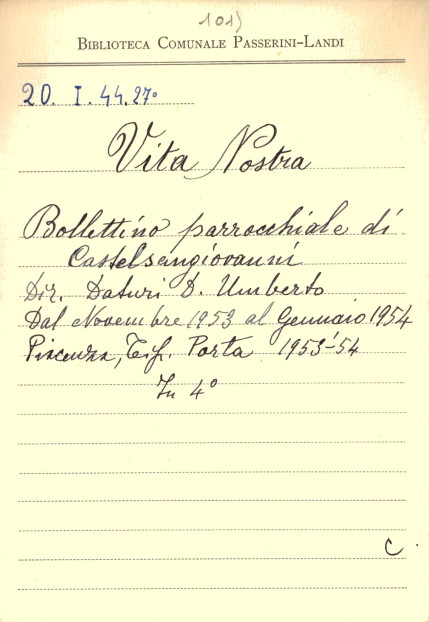 101)
BIBLIOTECA COMUNALE PASSERINI-LANDI
20. I. 44. 27°
Vita Nostra
Bollettino parrocchiale di
Castelsangiovanni
Dir. Daturi D. Umberto
Dal Novembre 1953 al Gennaio 1954
Piacenza, Tip. Porta 1953-54
In 4°
C